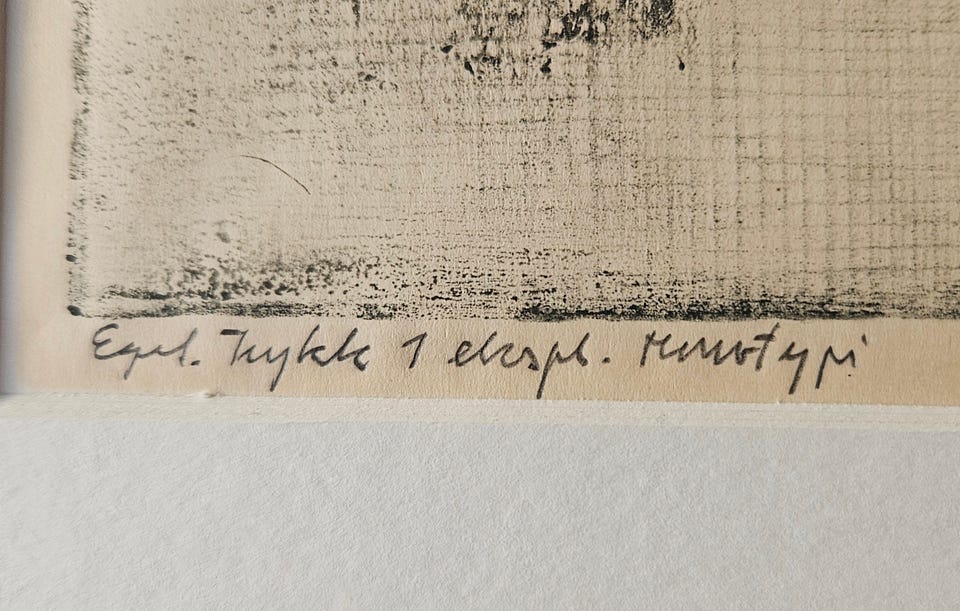 Egel. Trykk 1 ekspl. Monotypi